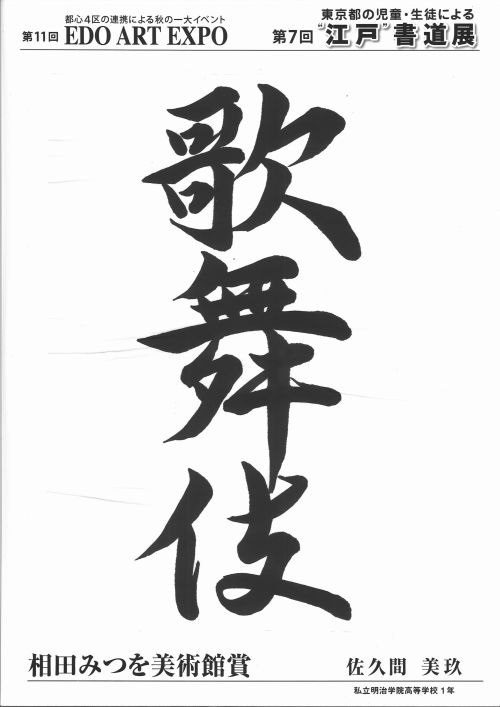 都心4区の連携による秋の一大イベント
第11回 EDO ART EXPO
東京都の児童・生徒による
第7回 “江戸”書道展
歌舞伎
相田みつを美術館賞
佐久間 美玖
私立明治学院高等学校1年